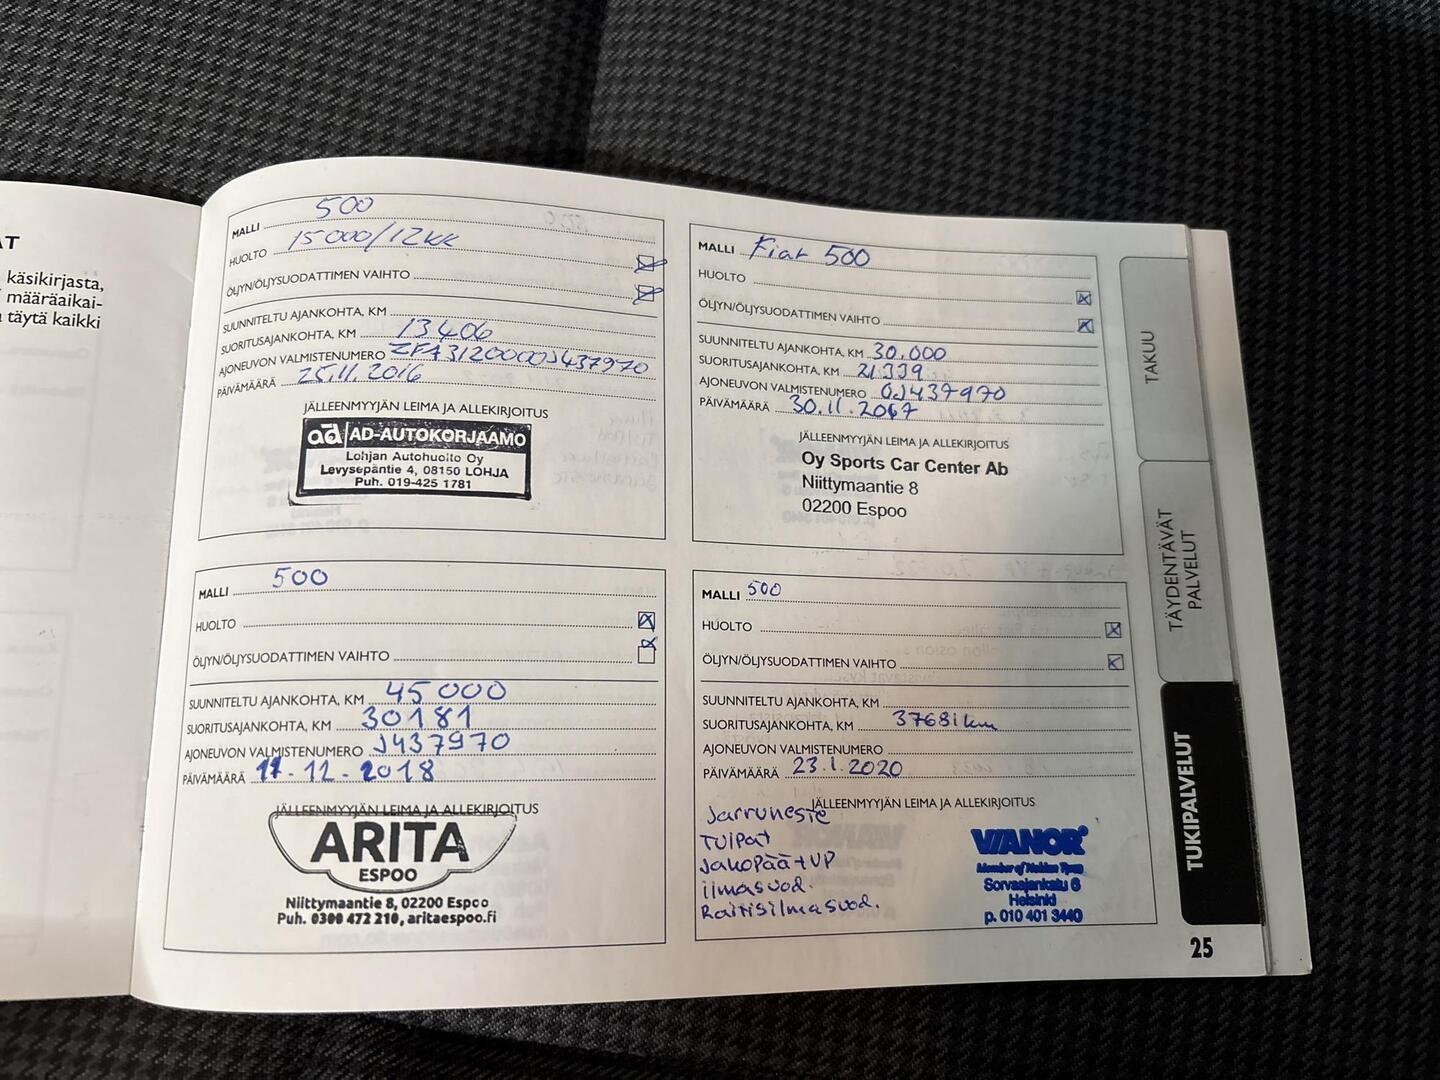 AT
käsikirjasta,
määräaikai-
täytä kaikki
MALLI 500
HUOLTO 15000/12kk
ÖLJYN/ÖLJYSUODATTIMEN VAIHTO
SUUNNITELTU AJANKOHTA, KM
SUORITUSAJANKOHTA, KM 13406
AJONEUVON VALMISTENUMERO ZFA3120000J437970
PÄIVÄMÄÄRÄ 25.11.2016
JÄLLEENMYYJÄN LEIMA JA ALLEKIRJOITUS
ad AD-AUTOKORJAAMO
Lohjan Autohuolto Oy
Levysepäntie 4, 08150 LOHJA
Puh. 019-425 1781
MALLI Fiat 500
HUOLTO
ÖLJYN/ÖLJYSUODATTIMEN VAIHTO
SUUNNITELTU AJANKOHTA, KM 30.000
SUORITUSAJANKOHTA, KM 21339
AJONEUVON VALMISTENUMERO 0J437970
PÄIVÄMÄÄRÄ 30.11.2017
JÄLLEENMYYJÄN LEIMA JA ALLEKIRJOITUS
Oy Sports Car Center Ab
Niittymaantie 8
02200 Espoo
MALLI 500
HUOLTO
ÖLJYN/ÖLJYSUODATTIMEN VAIHTO
SUUNNITELTU AJANKOHTA, KM 45000
SUORITUSAJANKOHTA, KM 30181
AJONEUVON VALMISTENUMERO J437970
PÄIVÄMÄÄRÄ 11-12-2018
JÄLLEENMYYJÄN LEIMA JA ALLEKIRJOITUS
ARITA
ESPOO
Niittymaantie 8, 02200 Espoo
Puh. 0300 472 210, aritaespoo.fi
MALLI 500
HUOLTO
ÖLJYN/ÖLJYSUODATTIMEN VAIHTO
SUUNNITELTU AJANKOHTA, KM
SUORITUSAJANKOHTA, KM 37681km
AJONEUVON VALMISTENUMERO
PÄIVÄMÄÄRÄ 23.1.2020
JÄLLEENMYYJÄN LEIMA JA ALLEKIRJOITUS
Jarruneste
Tulpat
Jakopää+VP
ilmasuod.
Raitisilmasuod.
VIANOR
Member of Nokian Tyres
Sorvaajankatu 6
Helsinki
p. 010 401 3440
TAKUU
TÄYDENTÄVÄT
PALVELUT
TUKIPALVELUT
25